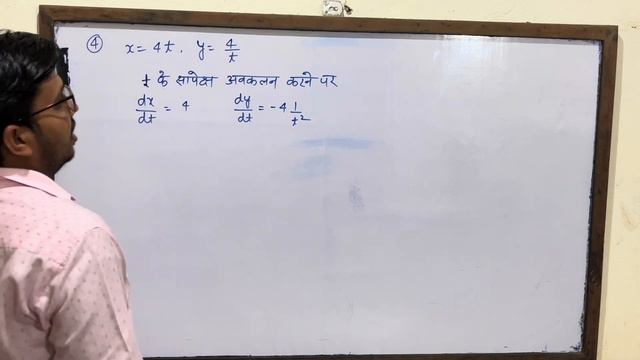 ④ x = 4t, y = 4/t
t के सापेक्ष अवकलन करने पर
dx/dt = 4 dy/dt = -4 1/t²